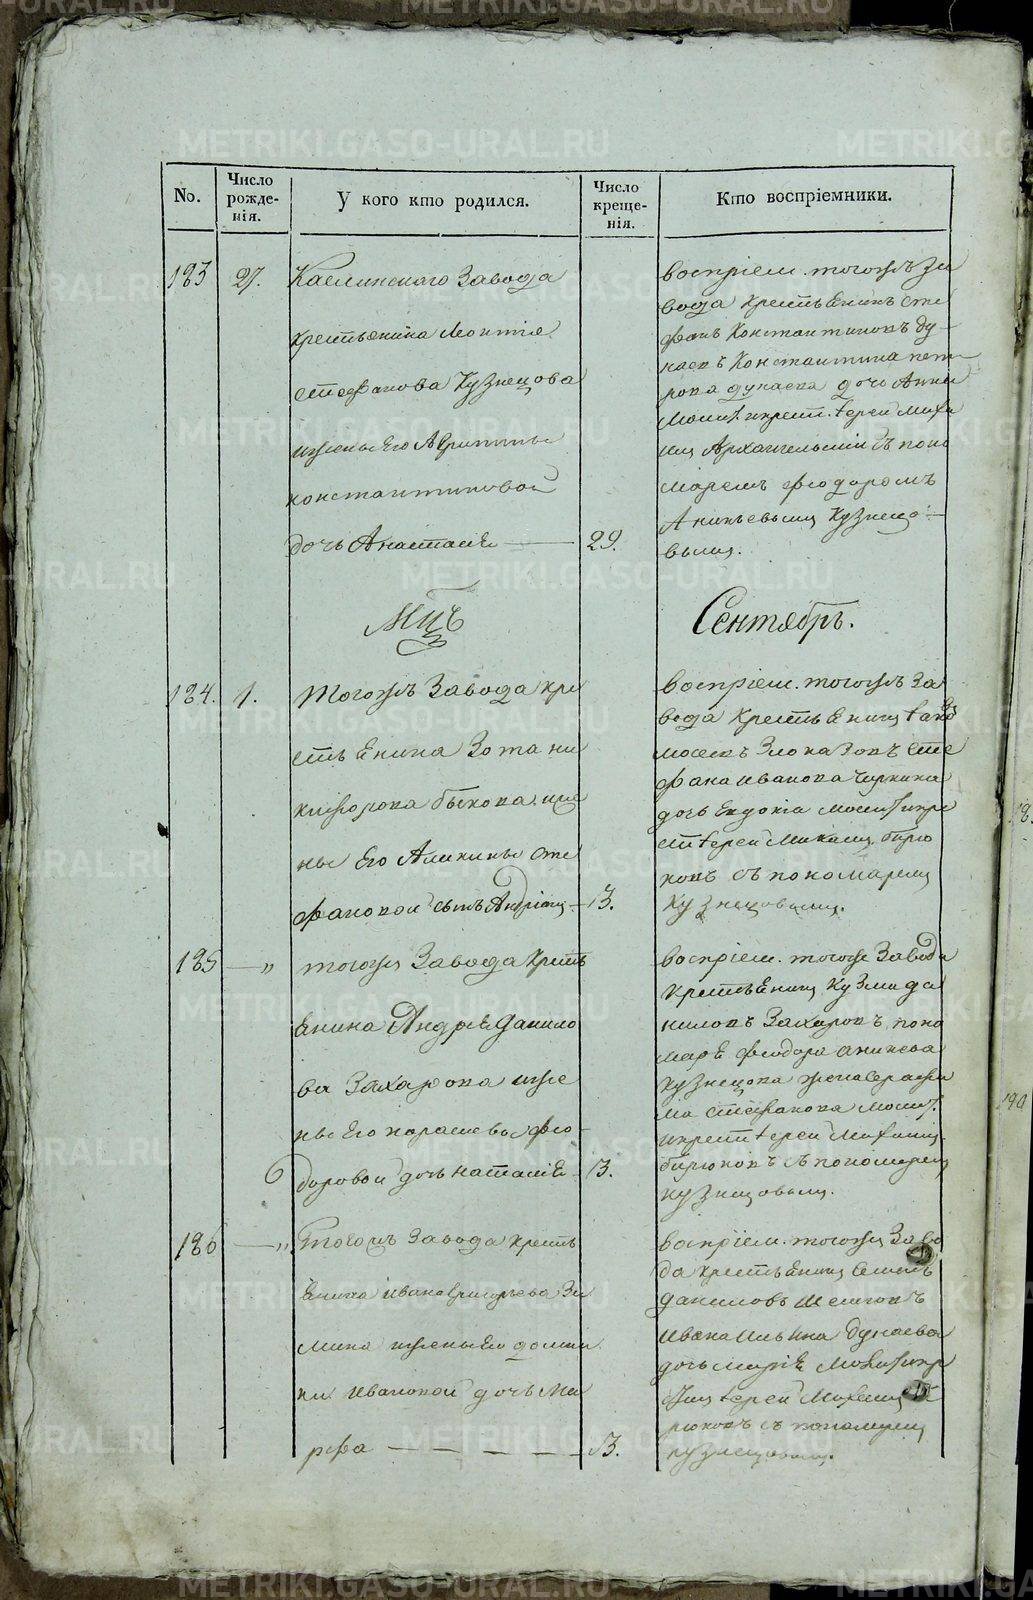 No.
Число рожде-нія.
У кого кто родился.
Число креще-нія.
Кто воспріемники.
183
27.
Каслинскаго Завода
крестьянина Леонтія
стефанова Кузнецова
ижены Его Агрипины
константиновой
дочь Анастасія
29.
воспріем. тогожъ за
вода крестьЕнинъ сте
фанъ Константиновъ ду
наевъ Константина пет
рова дунаева дочь Анна
молит. икрест. Іерей миха
илъ Архангельскій съ поно
маремъ феодоромъ
Аникьевымъ Кузнецо-
вымъ.
Мцъ
Сентябрь.
184.
1.
Тогожъ Завода кре
стьЕнина Зота ни
кифорова быкова иже
ны Его Акилины сте
фановой сынъ Андріянъ
13.
воспріем. тогожъ за
вода крестьЕнинъ
Злоказовъ сте
фана иванова чиркина
дочь Евдокіа молит. икре
ст Іерей Михаилъ бирю
ковъ съ пономаремъ
кузнецовымъ.
185
"
тогожъ Завода крестъ
Енина АндреЕ данило
ва Захарова иже
ны Его парасковьи фео
доровой дочь наталіЕ
13.
воспріем. тогоже Завода
крестьЕнинъ Кузма да
ниловъ Захаровъ, поно
марЕ феодора аникева
кузнецова жена серафи
ма стефанова молит.
икрест Іерей Михаилъ
бирюковъ съ пономаремъ
кузнецовымъ.
186
"
Тогожъ Завода крестъ
Енина ивана григорьева Зи
мина ижены Его домни
ки ивановой дочь Ма
рфа
13.
воспріем. тогожъ Заво
да крестьЕнинъ Семенъ
даниловъ
ивана ильина дунаева
дочь маріЕ молит. икре
Іерей Михаилъ би
рюковъ съ пономаремъ
кузнецовымъ.
190
METRIKI.GASO-URAL.RU